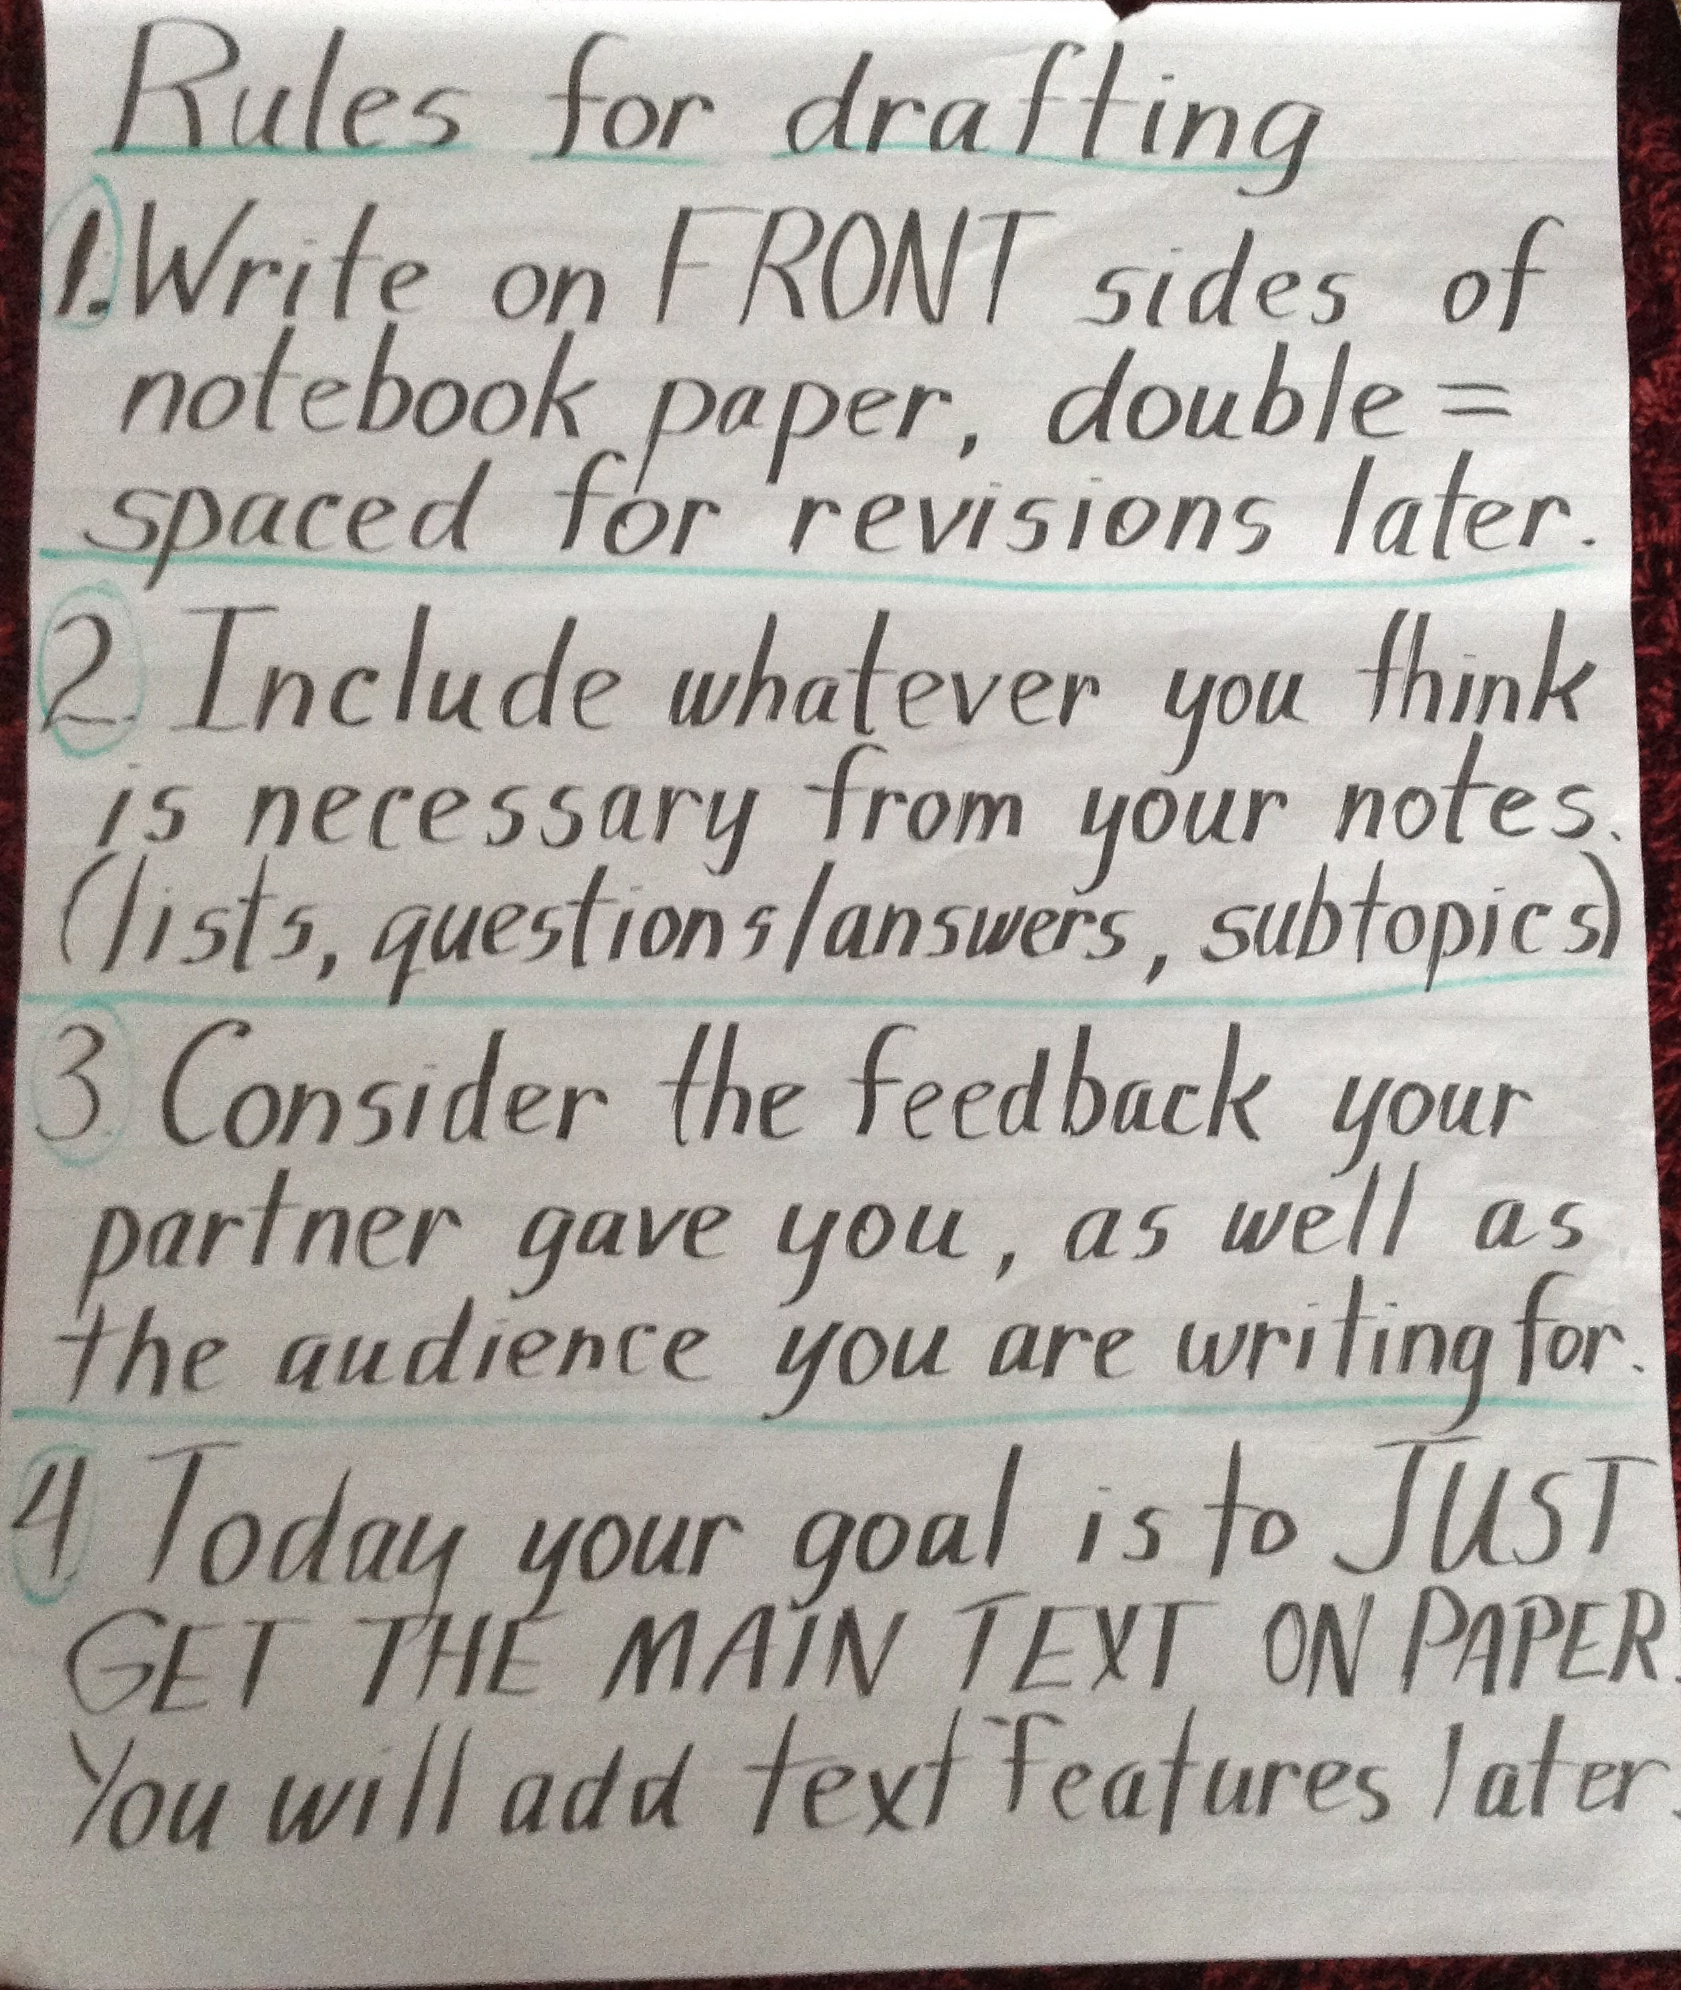 Rules for drafting
1. Write on FRONT sides of
notebook paper, double=
spaced for revisions later.
2. Include whatever you think
is necessary from your notes.
(lists, questions/answers, subtopics)
3. Consider the feedback your
partner gave you, as well as
the audience you are writing for.
4. Today your goal is to JUST
GET THE MAIN TEXT ON PAPER.
You will add text features later.